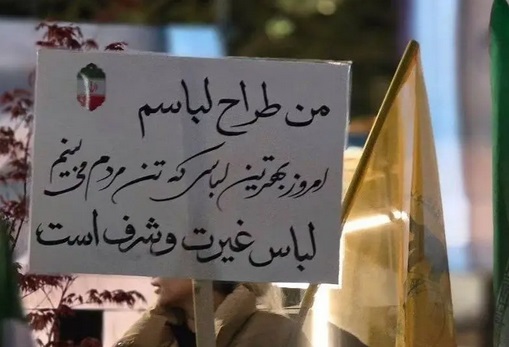 من طراح لباسم
امروز بهترین لباسی که تن مردم می بینم
لباس غیرت و شرف است